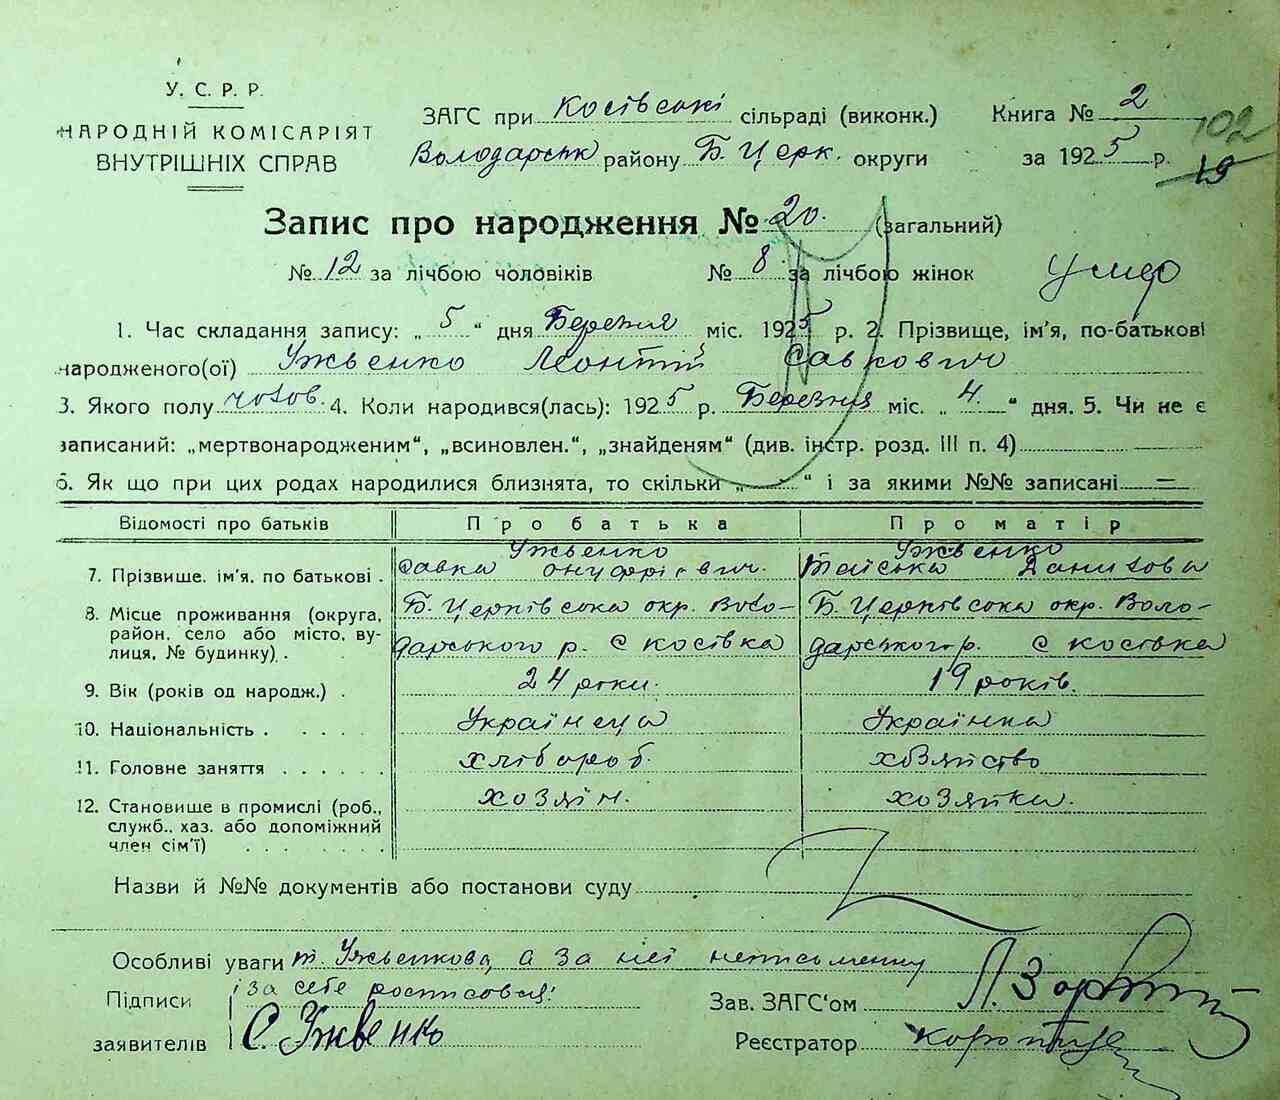 У. С. Р. Р.
НАРОДНІЙ КОМІСАРІЯТ
ВНУТРІШНІХ СПРАВ
ЗАГС при Косівські сільраді (виконк.) Книга № 2
Володарськ району Б. Церк. округи за 1925 р.
102
19
Запис про народження № 20. (загальний)
№ 12 за лічбою чоловіків № 8 за лічбою жінок
1. Час складання запису: „ 5 “ дня Березня міс. 1925 р. 2. Прізвище, ім'я, по-батькові
народженого(ої) Ужвенко Леонтій Савкович
3. Якого полу чолов. 4. Коли народився(лась): 1925 р. Березня міс. „ 4. “ дня. 5. Чи не є
записаний: „мертвонародженим“, „всиновлен.“, „знайденям“ (див. інстр. розд. III п. 4)
6. Як що при цих родах народилися близнята, то скільки „ — “ і за якими №№ записані —
Відомості про батьків Про батька Про матір
7. Прізвище, ім'я, по батькові . Ужвенко Савка Онуфрієвич. Ужвенко Тайська Данилова
8. Місце проживання (округа, район, село або місто, вулиця, № будинку) . Б. Церківська окр. Володарського р. с Косівка Б. Церківська окр. Володарського р. с Косівка
9. Вік (років од народж.) . 24 роки. 19 років.
10. Національність . . . . . Українец Українка
11. Головне заняття . . . . . . хлібороб. хозяйство
12. Становище в промислі (роб., служб., хаз. або допоміжний член сім'ї) . . . . . . . хозяін. хозяйка.
Назви й №№ документів або постанови суду
Особливі уваги т. Ужвенкова, а за неї неписьменну
Підписи і за себе росписовця:
заявителів С. Ужвенко
Зав. ЗАГС'ом
Реєстратор